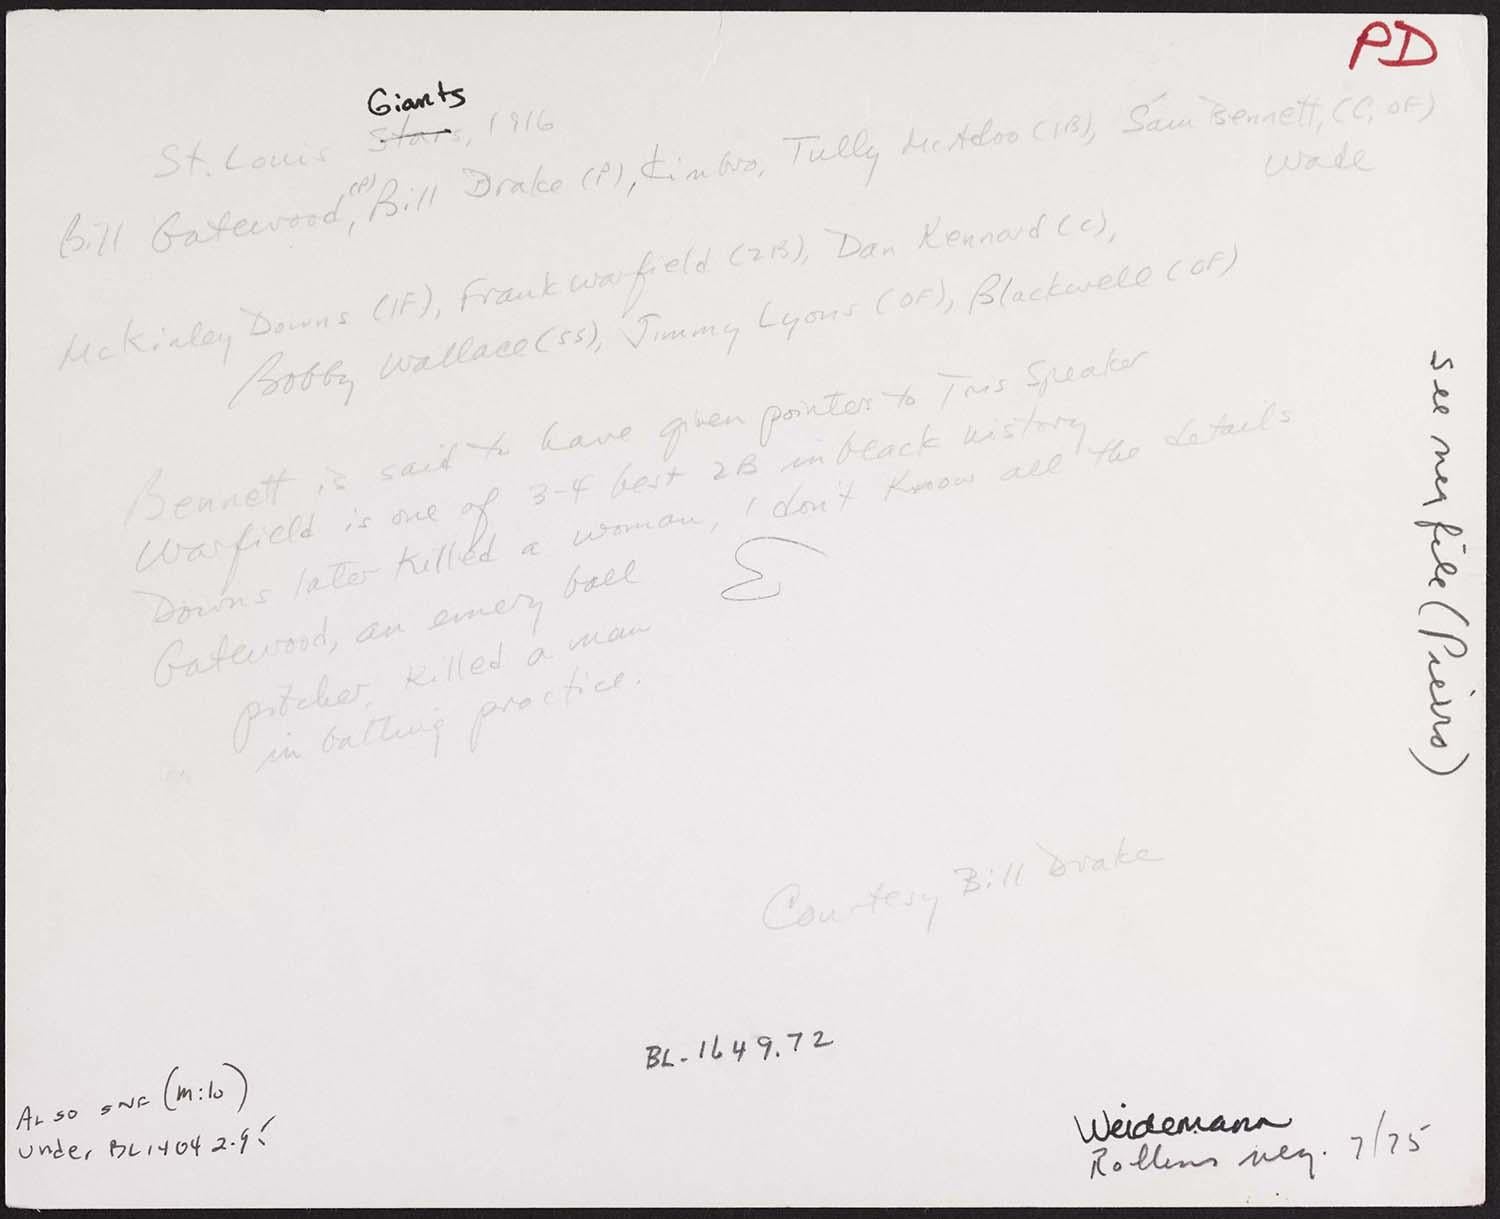 PD
Giants
St. Louis Stars, 1916
Bill Gatewood, (P) Bill Drake (P), Kimbro, Tully McAdoo (1B), Sam Bennett, (C, OF)
Wade
McKinley Downs (IF), Frank Warfield (2B), Dan Kennard (C),
Bobby Wallace (SS), Jimmy Lyons (OF), Blackwell (OF)
Bennett is said to have given pointers to Tris Speaker
Warfield is one of 3-4 best 2B in black history
Downs later killed a woman, I don't know all the details
Gatewood, an emery ball
pitcher, killed a man
in batting practice.
see neg file (Piers)
Courtesy Bill Drake
BL-1649.72
Also (milo)
under BL14042-95
Weidemann
Rollins neg. 7/75